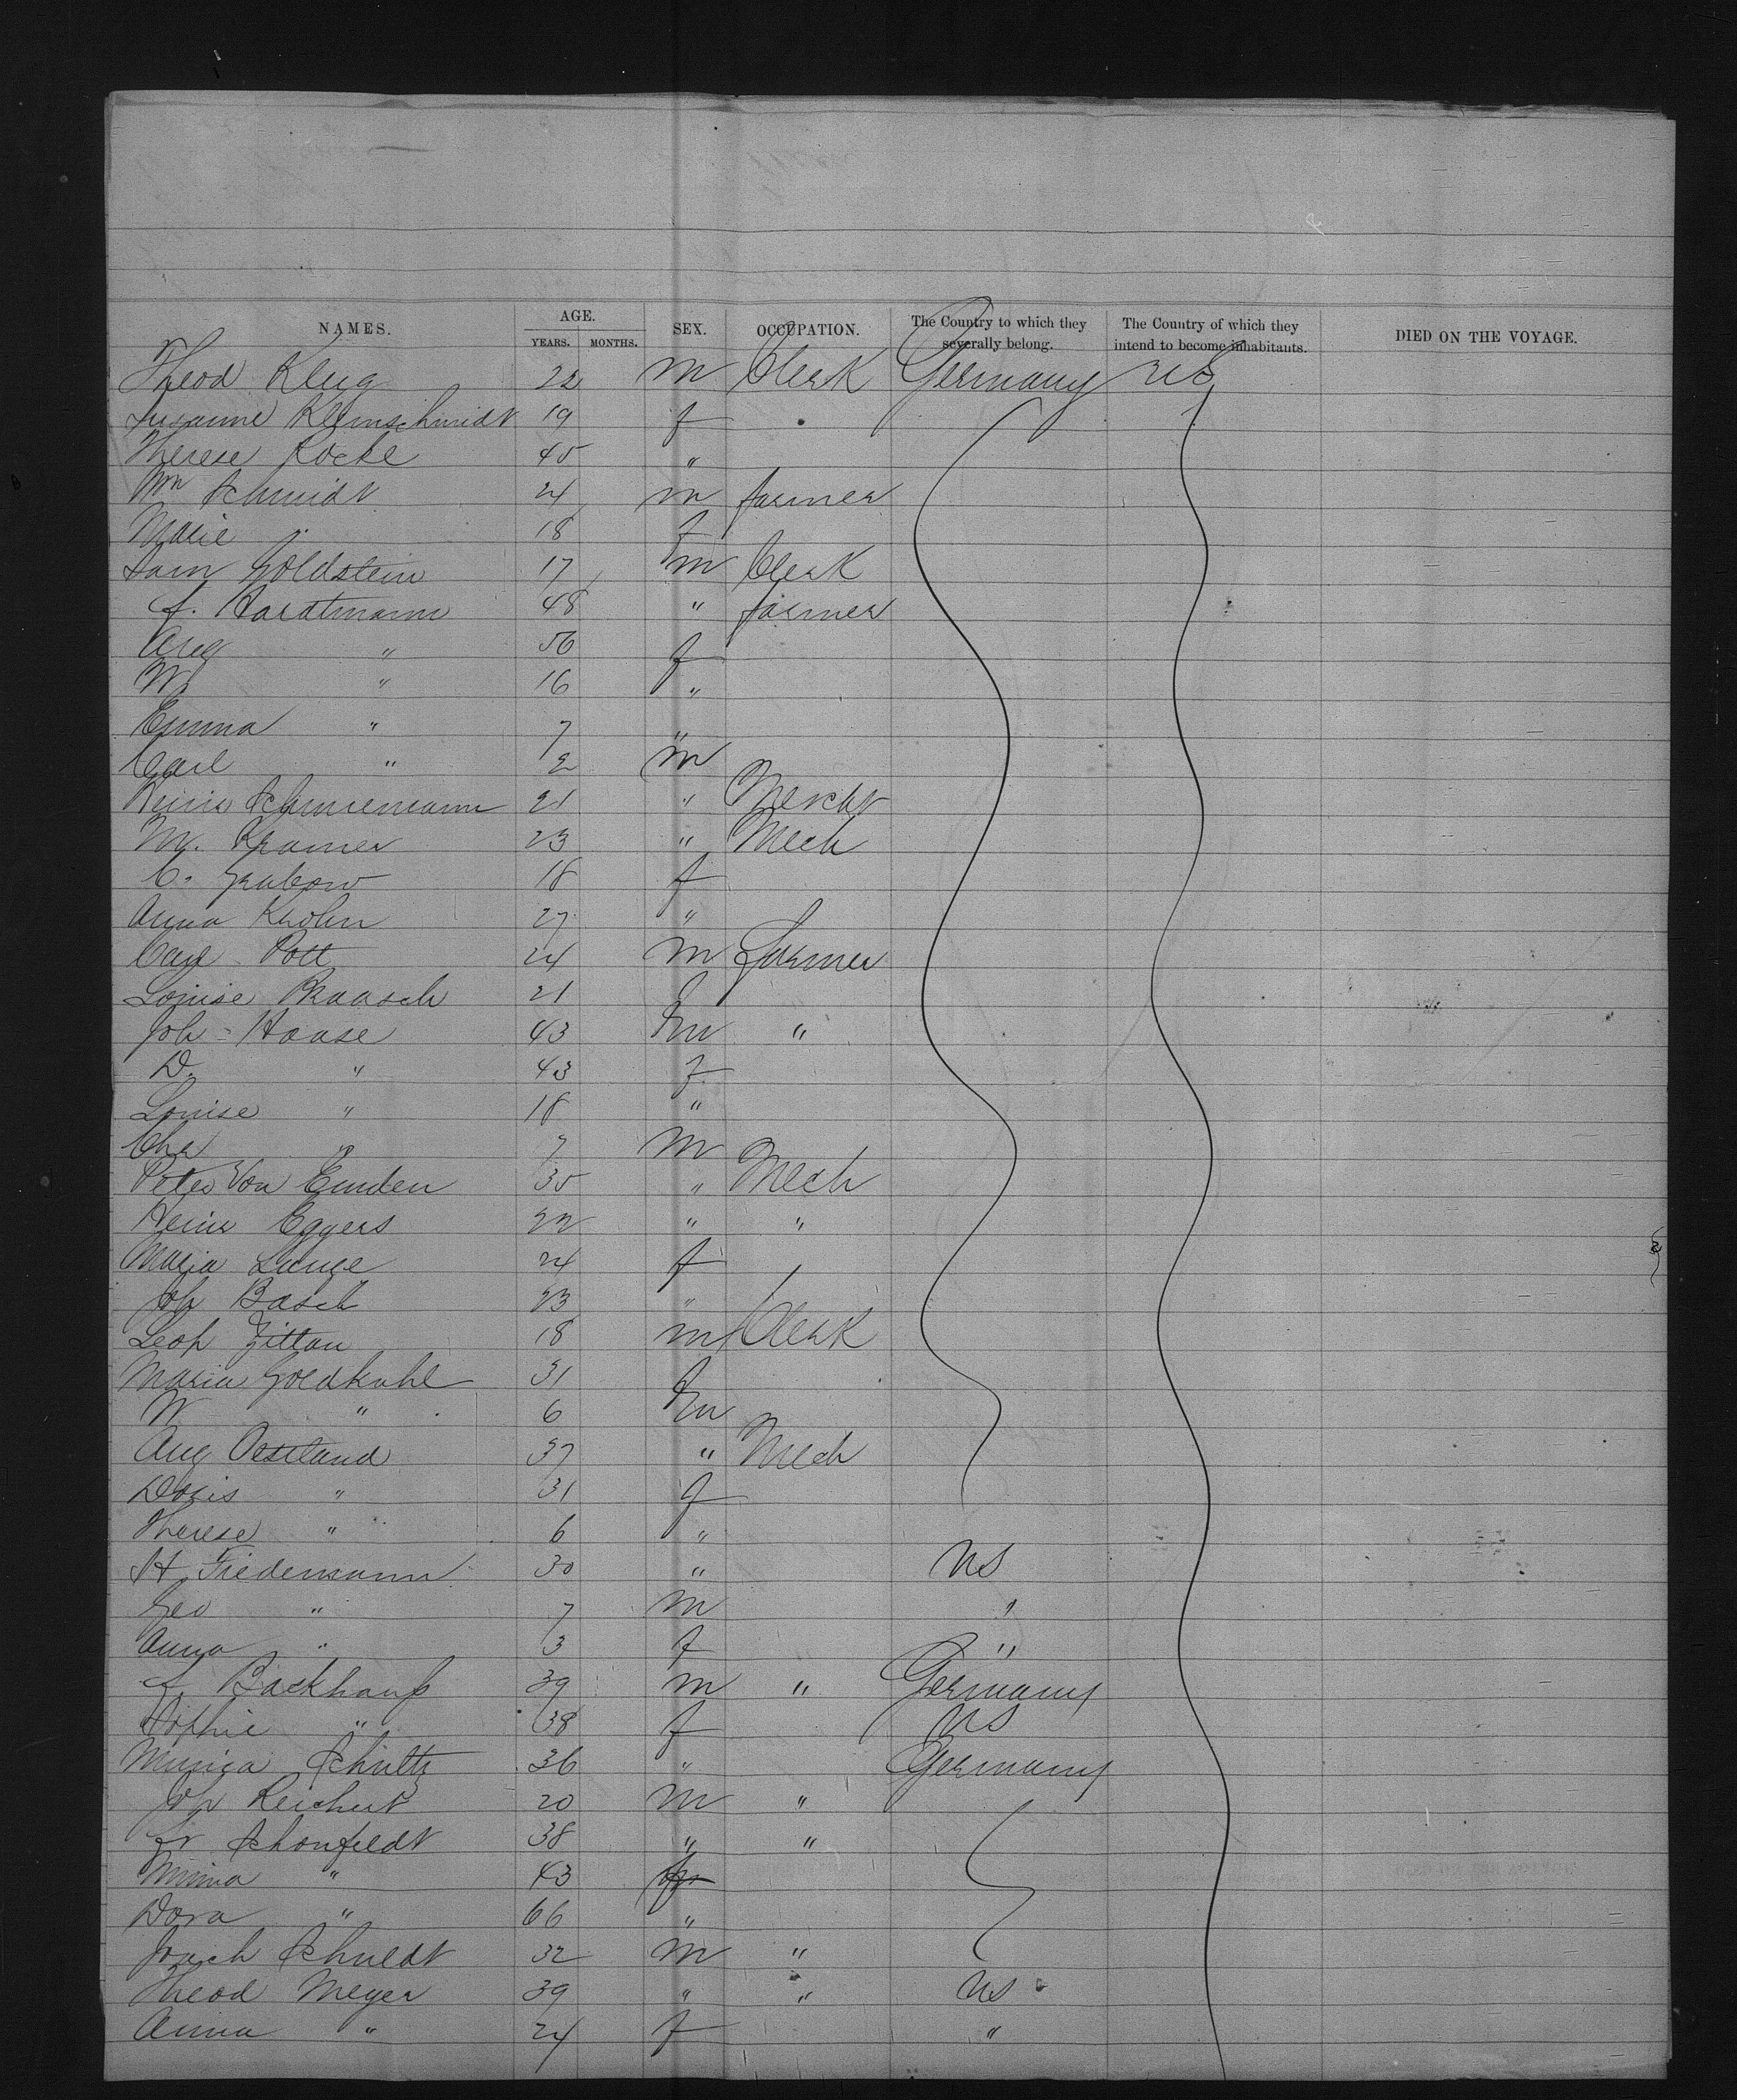 NAMES. AGE. YEARS. MONTHS. SEX. OCCUPATION. The Country to which they severally belong. The Country of which they intend to become inhabitants. DIED ON THE VOYAGE.
Theod Klug 22 m Clerk Germany US
Susanne Kleinschmidt 19 f
Therese Kocke 45 "
Wm Schmidt 24 m farmer
Marie " 18 f
Sam Goldstein 17 m Clerk
f. Hardtmann 48 " farmer
Aug " 56 f
W " 16 "
Emma " 7 "
Carl " 2 m
Heinr Schunemann 21 " Mercht
M. Kramer 23 " Mech
C. Grabow 18 f
Anna Krohn 27 "
Carl Pott 24 m Farmer
Louise Braasch 21 f
Joh Haase 43 m "
D. " 43 f
Louise " 18 "
Chr " 7 m
Peter Von Emden 35 " Mech
Heinr Eggers 22 " "
Maria Lange 24 f
Joh Basch 23 "
Leop Zittau 18 m Clerk
Maria Goldkuhl 31 f
W " 6 m
Aug Oestland 37 " Mech
Doris " 31 f
Therese " 6 "
H Tiedemann 30 " US
Geo " 7 m "
Anna " 3 f "
f Backhaus 39 m " Germany
Sophie " 38 f US
Schultz 36 " Germany
Joh Reichert 20 m "
Fr Schonfeldt 38 " "
Minna " 43 f
Dora " 66 "
Joach Schuldt 32 m "
Theod Meyer 39 " " US
Anna " 24 f "